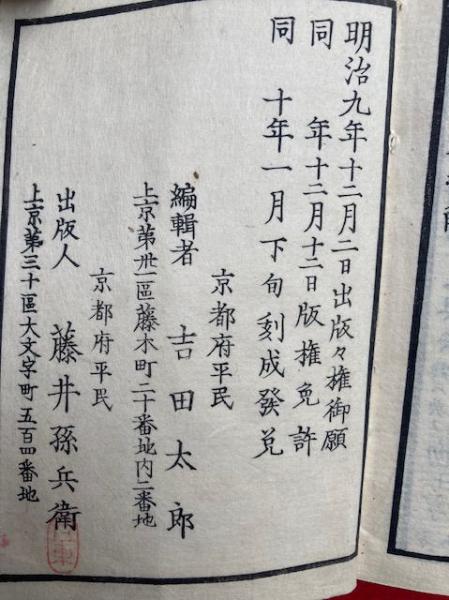 明治九年十二月二日出版々権御願
同　年十二月十二日版権免許
同　十年一月下旬刻成發兌
京都府平民
編輯者　吉田太郎
上京第卅二區藤木町二十番地内二番地
京都府平民
出版人　藤井孫兵衛
上京第三十區大文字町五百四番地